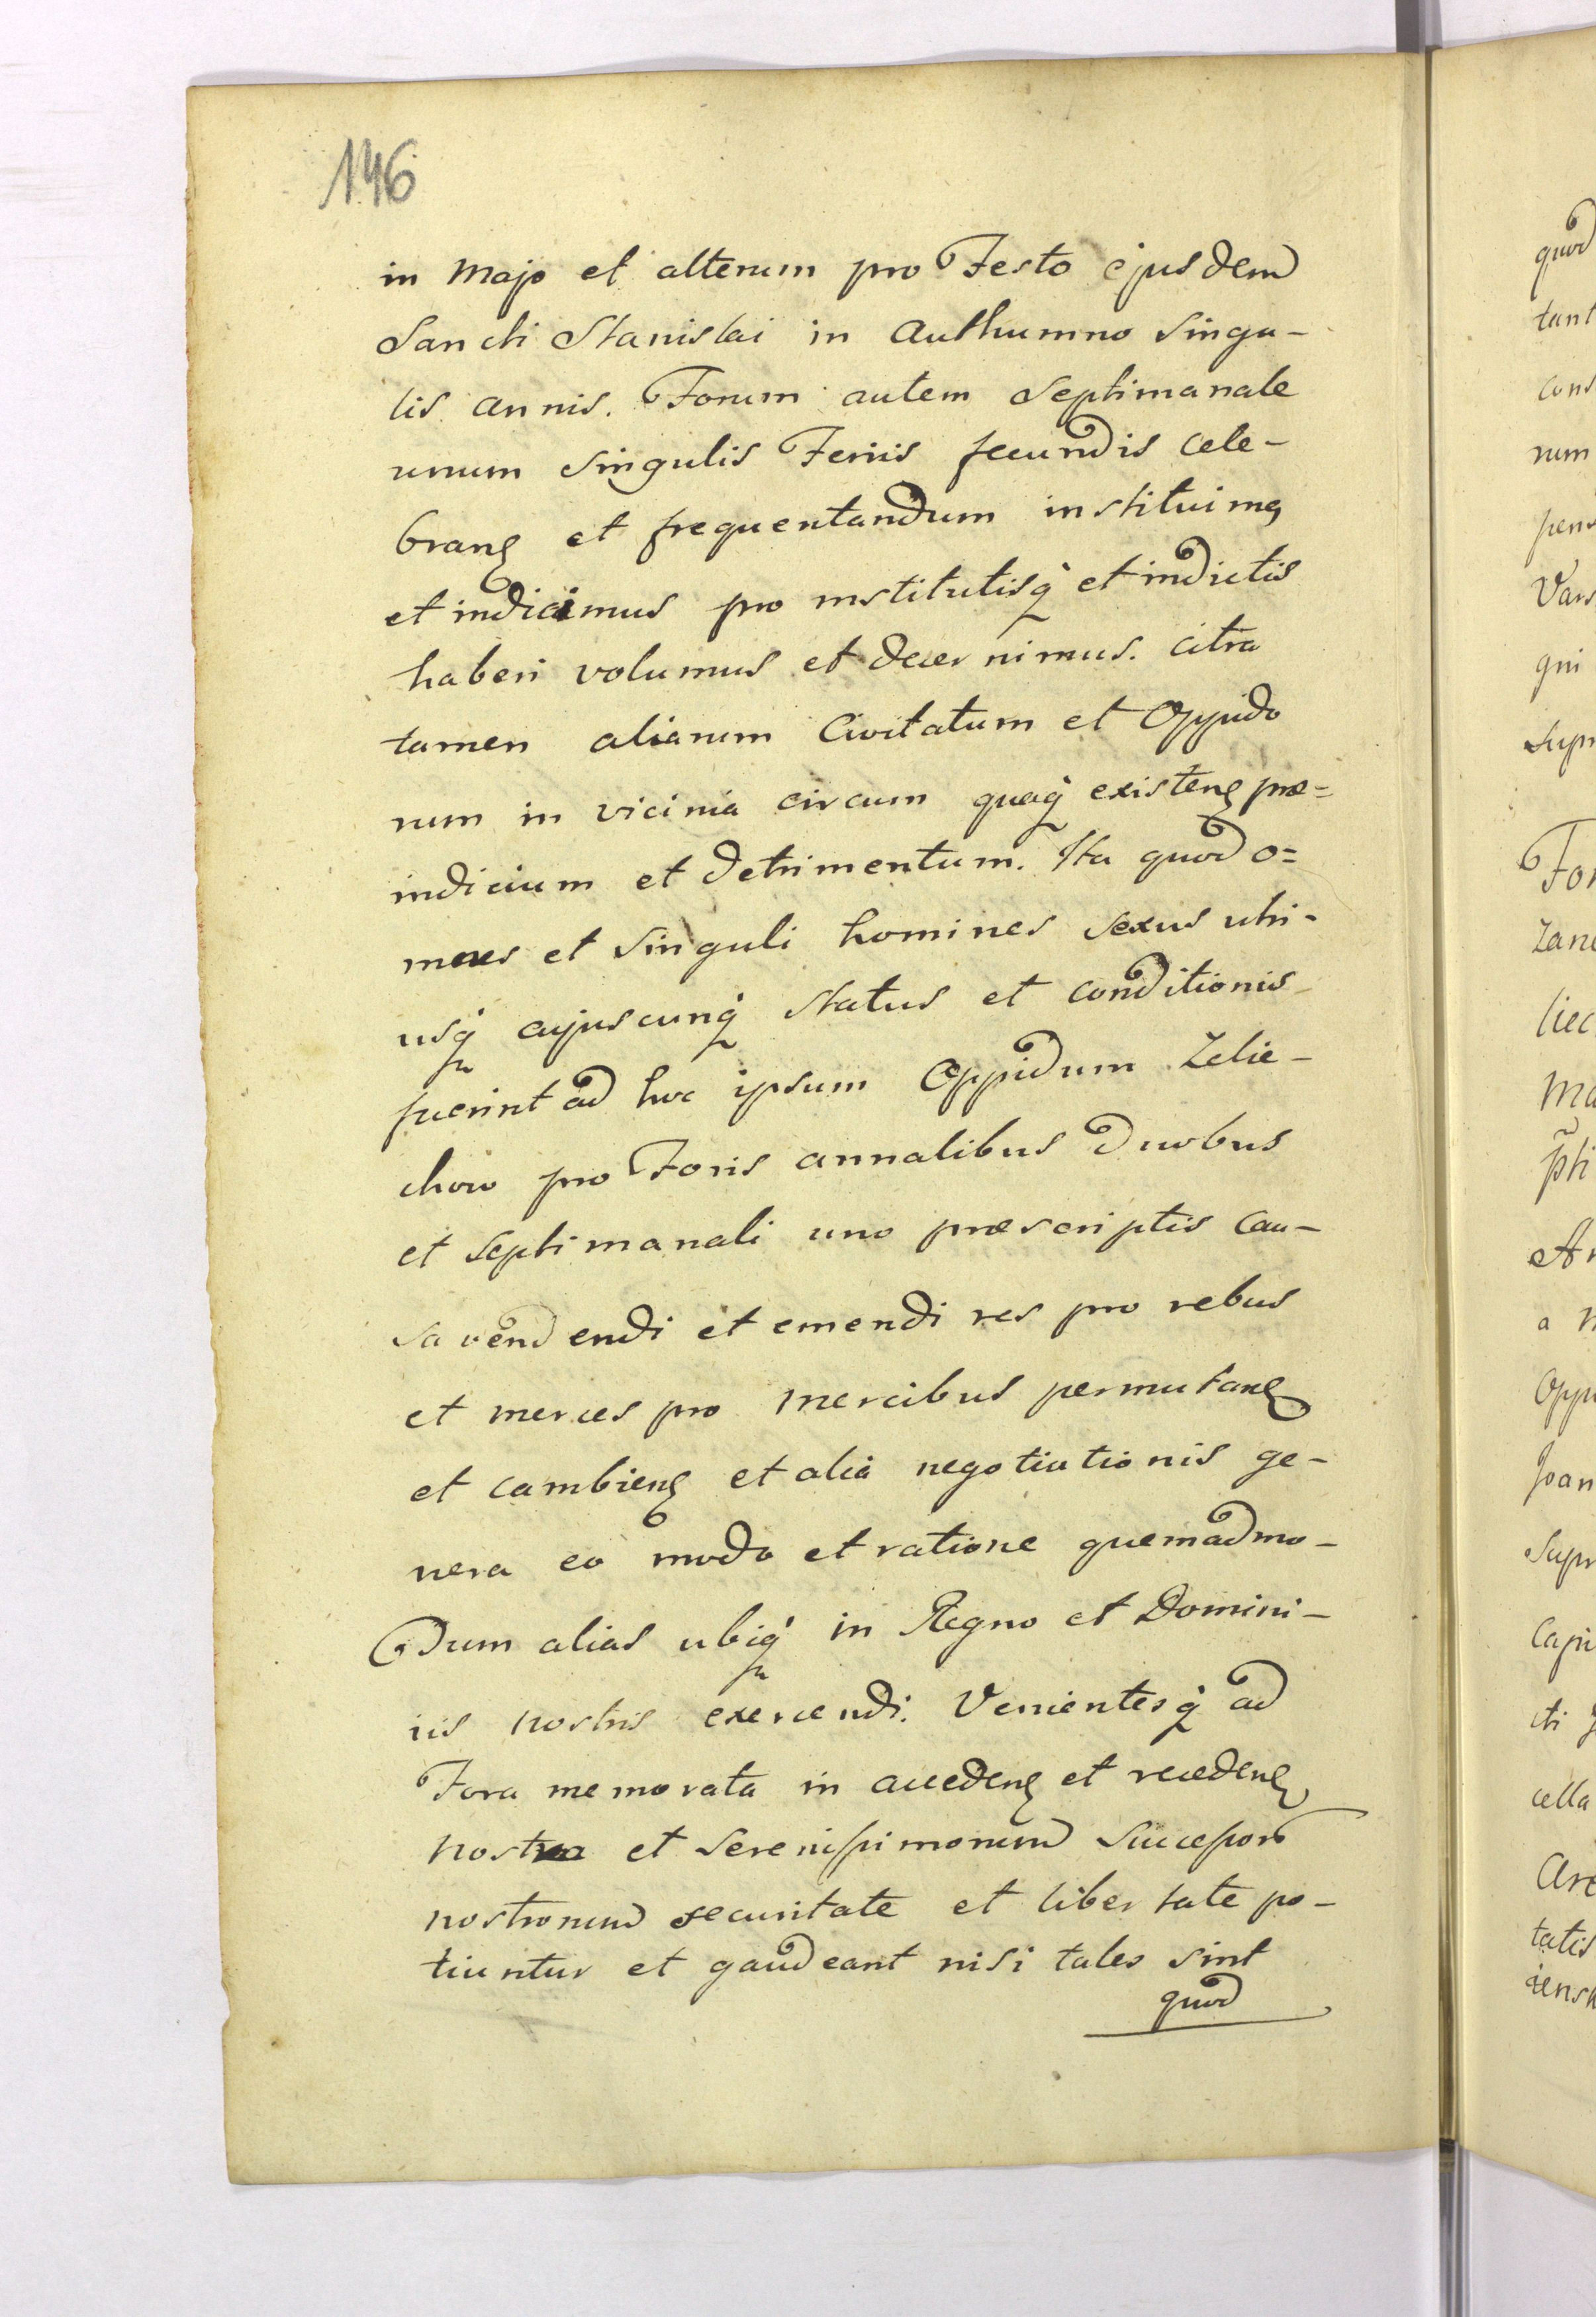 146
in Majo et alterum pro Festo ejusdem
Sancti Stanislai in Authumno Singu-
lis annis. Forum autem Septimanale
unum Singulis Feriis secundis Cele-
branɖ et frequentandum instituimq
et indicimus pro institutisq̓ et indictis
haberi volumus et decernimus. citra
tamen aliarum Civitatum et Oppido
rum in vicinia circum quaq̓ existenɖ præ=
iudicium et detrimentum. Ita quod o=
mnes et Singuli homines sexus utri-
usq̓ cujuscunq̓ Status et conditionis
fuerint ad hoc ipsum Oppidum Zelie-
chow pro Foris annalibus Duobus
et Septimanali uno præscriptis Cau-
sa vendendi et emendi res pro rebus
et merces pro mercibus permutanɖ
et cambienɖ et alia negotiationis ge-
nera eo modo et ratione quemadmo-
Dum alias ubiq̓ in Regno et Domini-
iis nostris exercendi. Venientesq̓ ad
Fora memorata in accedenɖ et recedenɖ
nostra et Serenissimorum Successorū
nostrorum securitate et libertate po-
tiuntur et gaudeant nisi tales sint
quod
quod
tant
cons
rum
pens
Vars
qui
Supr
For
Zane
liec
Ma
p̃ti
Ar
a
Oppi
Joan
Supr
Capi
cti
cella
Arc
tatis
iensk